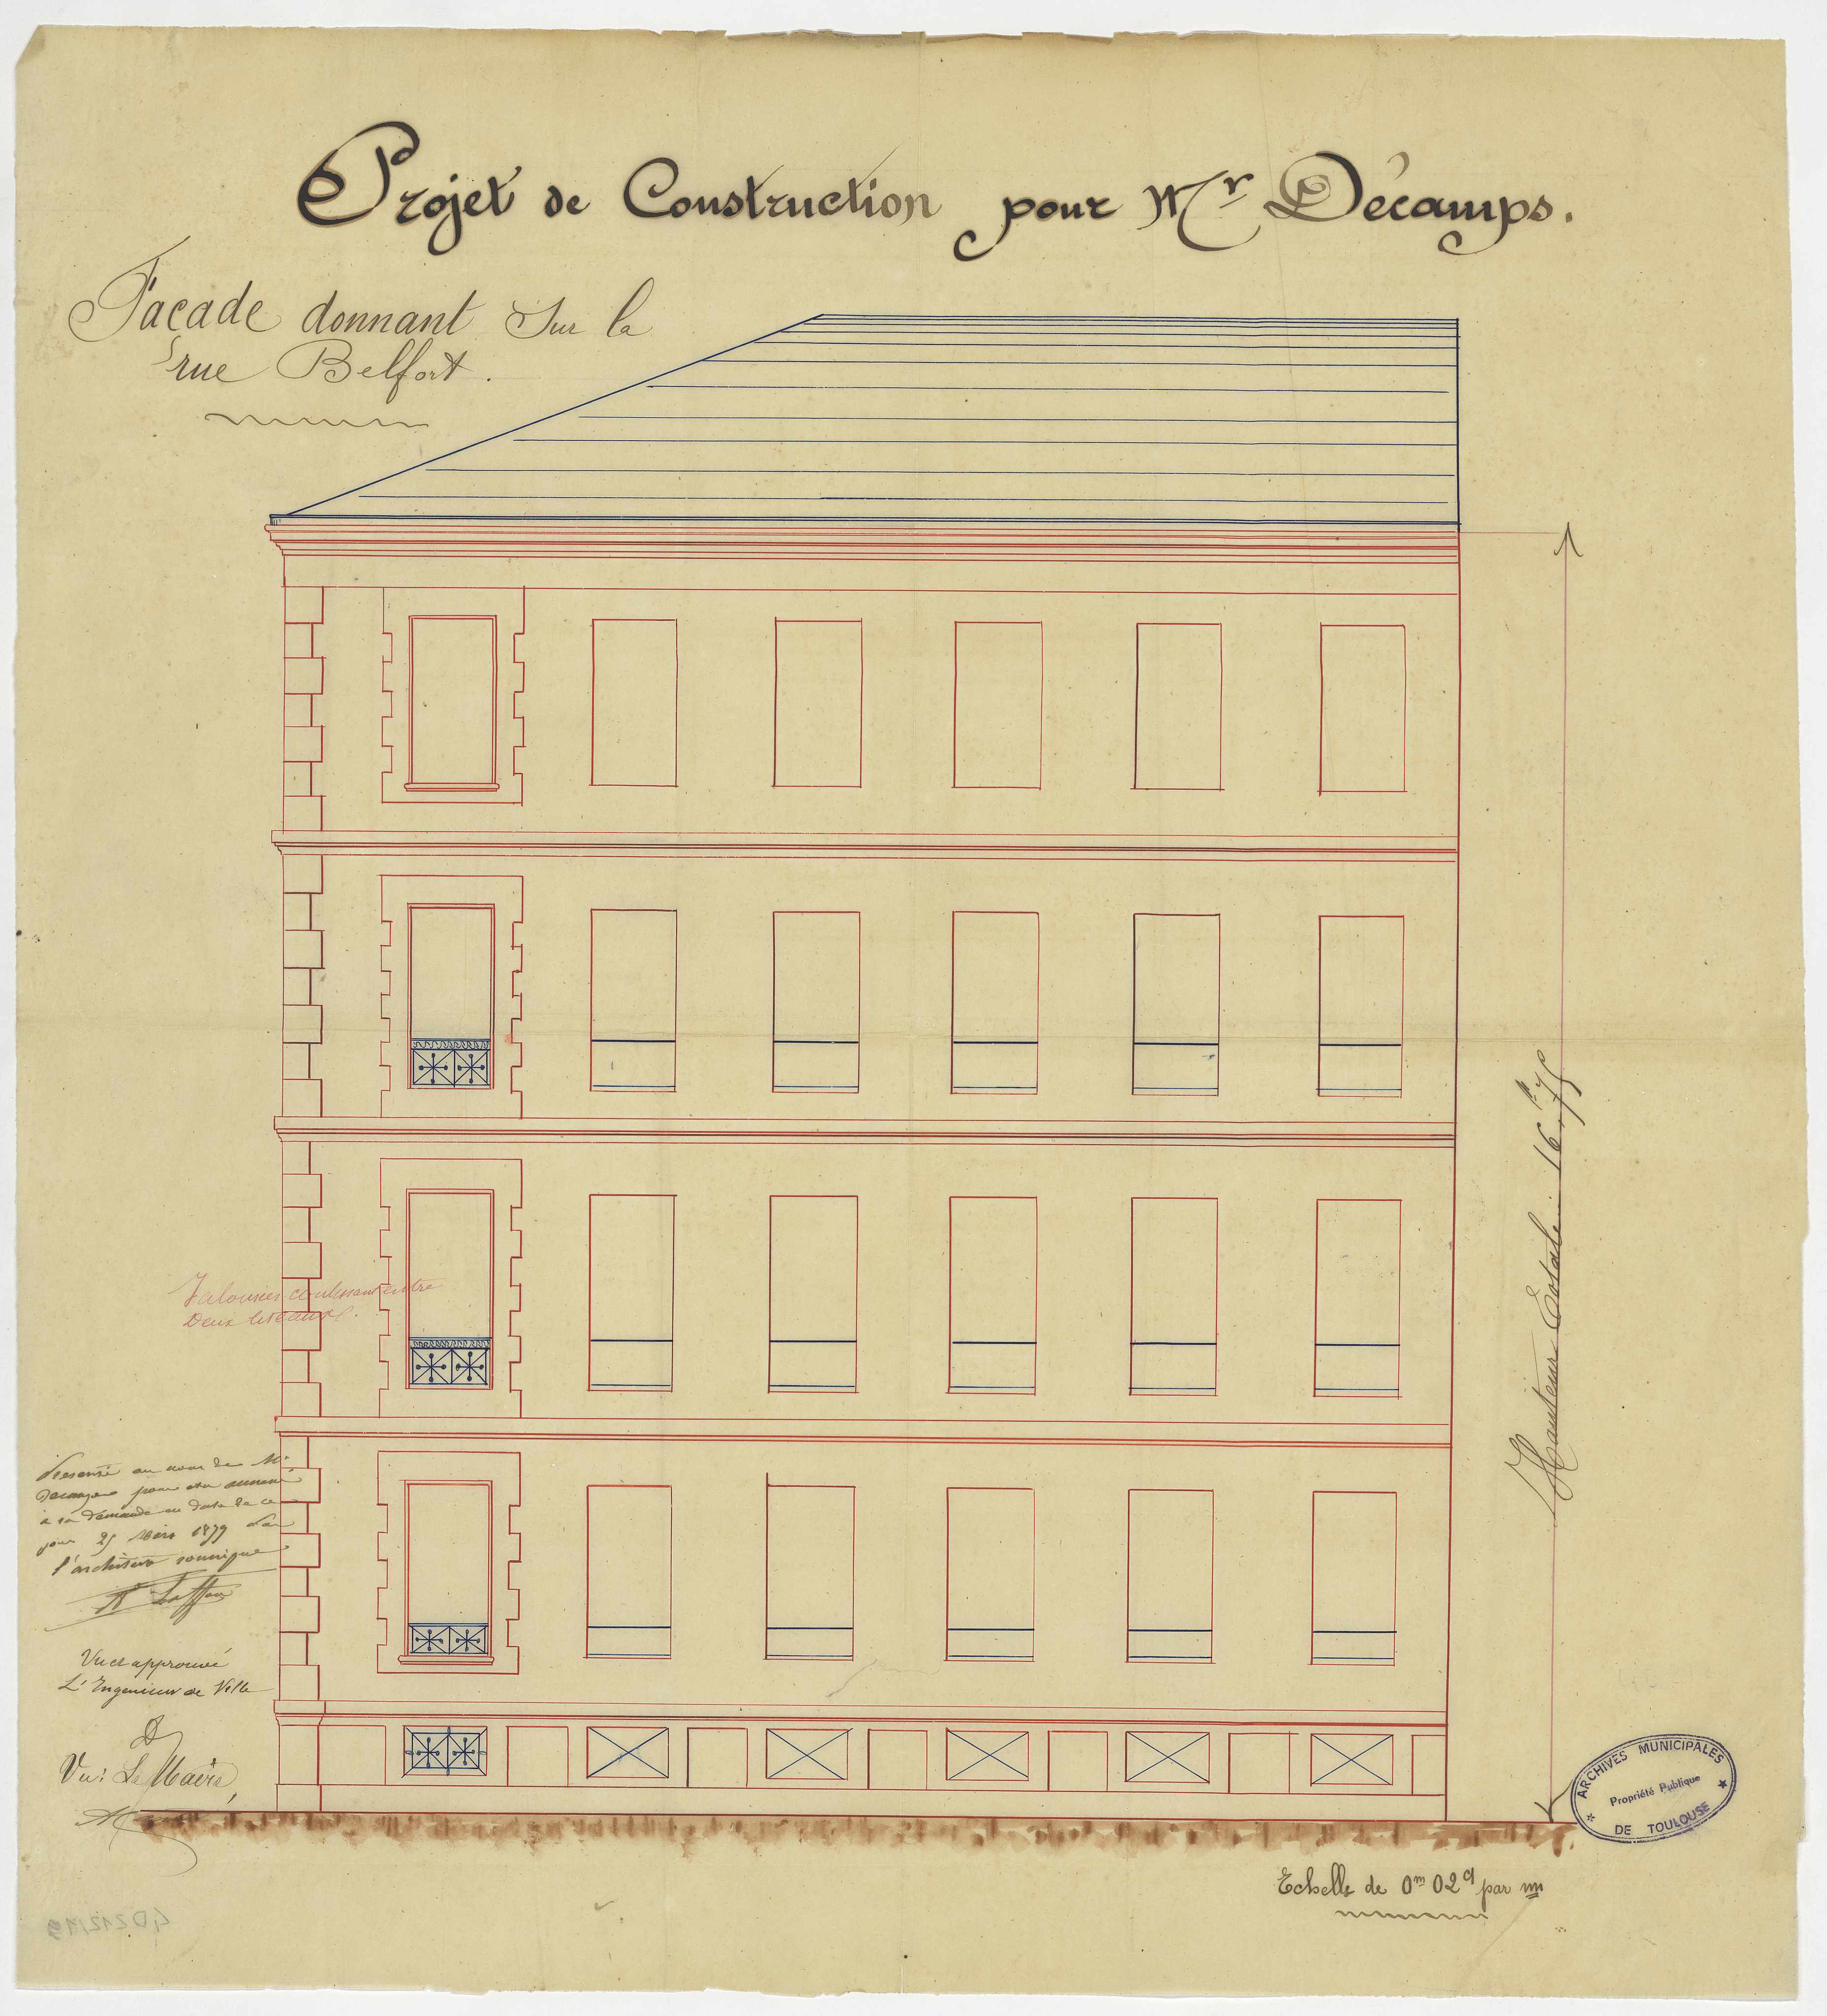 Projet de Construction pour Mr Décamps.
Facade donnant sur la
rue Belfort.
Hauteur totale.. 16m,75
Jalousies coulissant entre
Deux liteaux.
Présenté au nom de Mr
Decamps pour etre annexé
à sa demande en date de ce
jour 25 Mars 1879 Par
l'architecte soussigné
Vu et approuvé
L'Ingenieur de Ville
Vu: Le Maire,
ARCHIVES MUNICIPALES
Propriété Publique
DE TOULOUSE
Echelle de 0m 02c par m
4D212/19